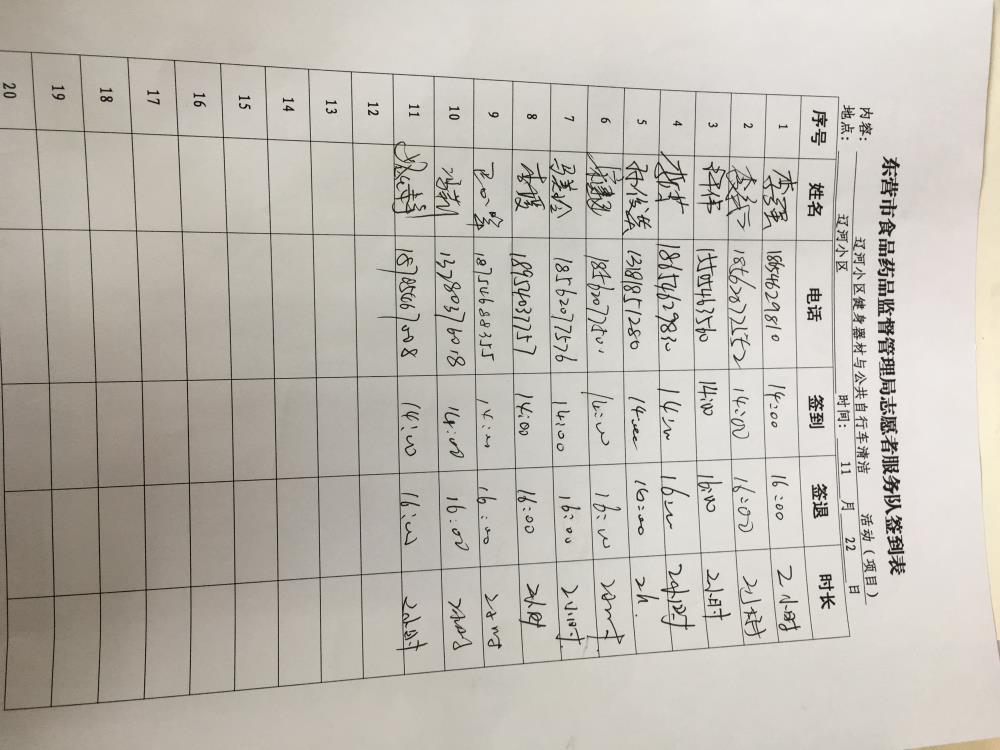 东营市食品药品监督管理局志愿者服务队签到表
内容: 辽河小区健身器材与公共自行车清洁 活动（项目）
地点: 辽河小区 时间: 11 月 22 日
序号 姓名 电话 签到 签退 时长
1 李强 18654629810 14:00 16:00 2小时
2 18562072552 14:00 16:00 2小时
3 14:00 16:00 2小时
4 18654629830 14:00 16:00 2小时
5 13181851280 14:00 16:00 2h
6 18562077501 14:00 16:00 2小时
7 马美玲 18562077576 14:00 16:00 2小时
8 18954037757 14:00 16:00 2小时
9 18754688355 14:00 16:00 2小时
10 13780376018 14:00 16:00 2小时
11 14:00 16:00 2小时
12
13
14
15
16
17
18
19
20